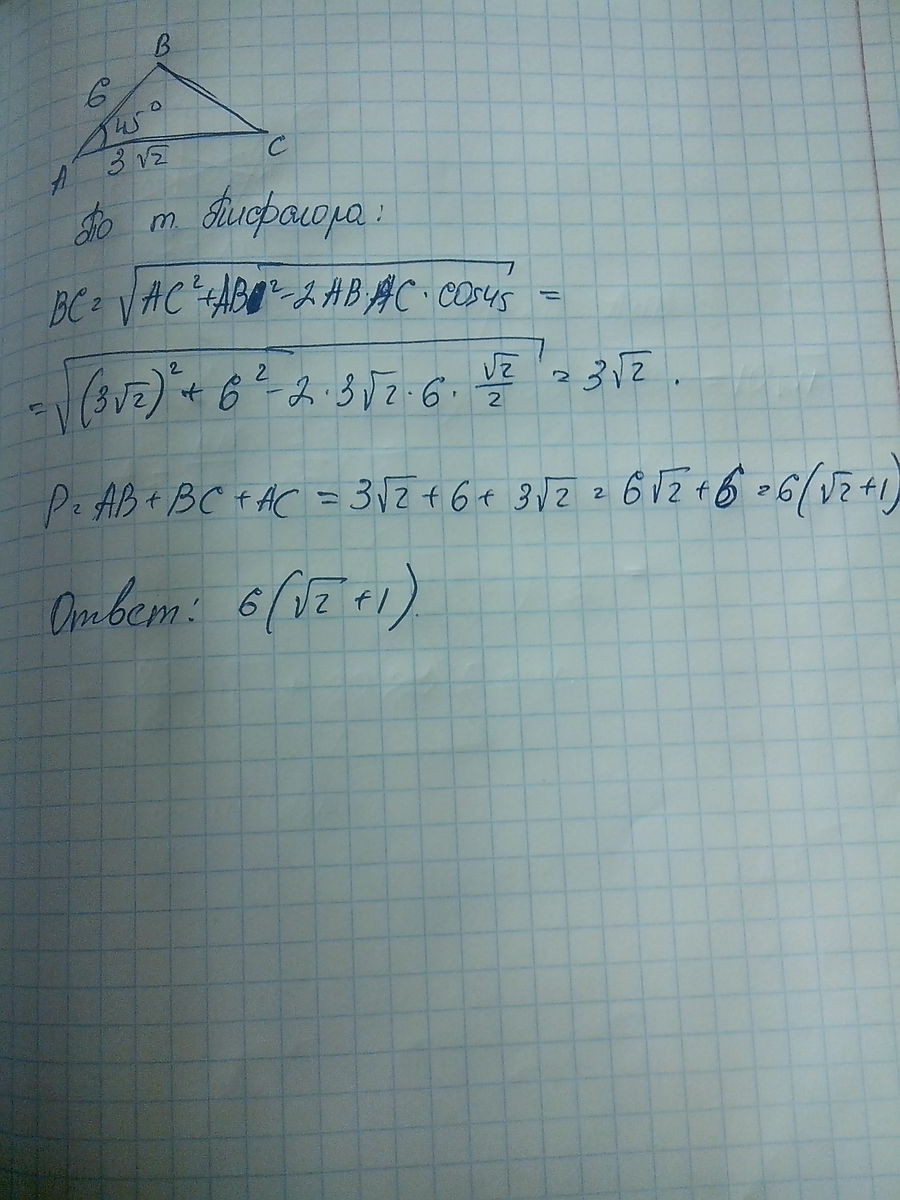 B
6
45°
A
3√2
C
По т. Пифагора:
BC = √(AC² + AB² - 2AB·AC · cos45) =
= √((3√2)² + 6² - 2·3√2·6·√2/2) = 3√2.
P = AB + BC + AC = 3√2 + 6 + 3√2 = 6√2 + 6 = 6(√2+1)
Ответ: 6(√2 + 1).